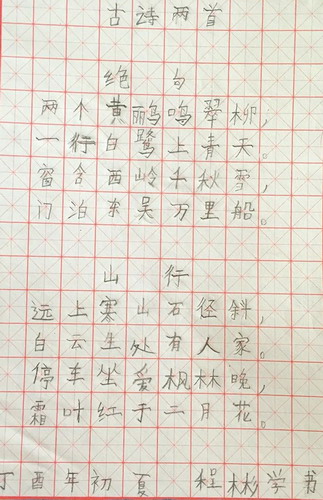 古诗两首
绝句
两个黄鹂鸣翠柳，
一行白鹭上青天。
窗含西岭千秋雪，
门泊东吴万里船。
山行
远上寒山石径斜，
白云生处有人家。
停车坐爱枫林晚，
霜叶红于二月花。
丁酉年初夏 程彬学书